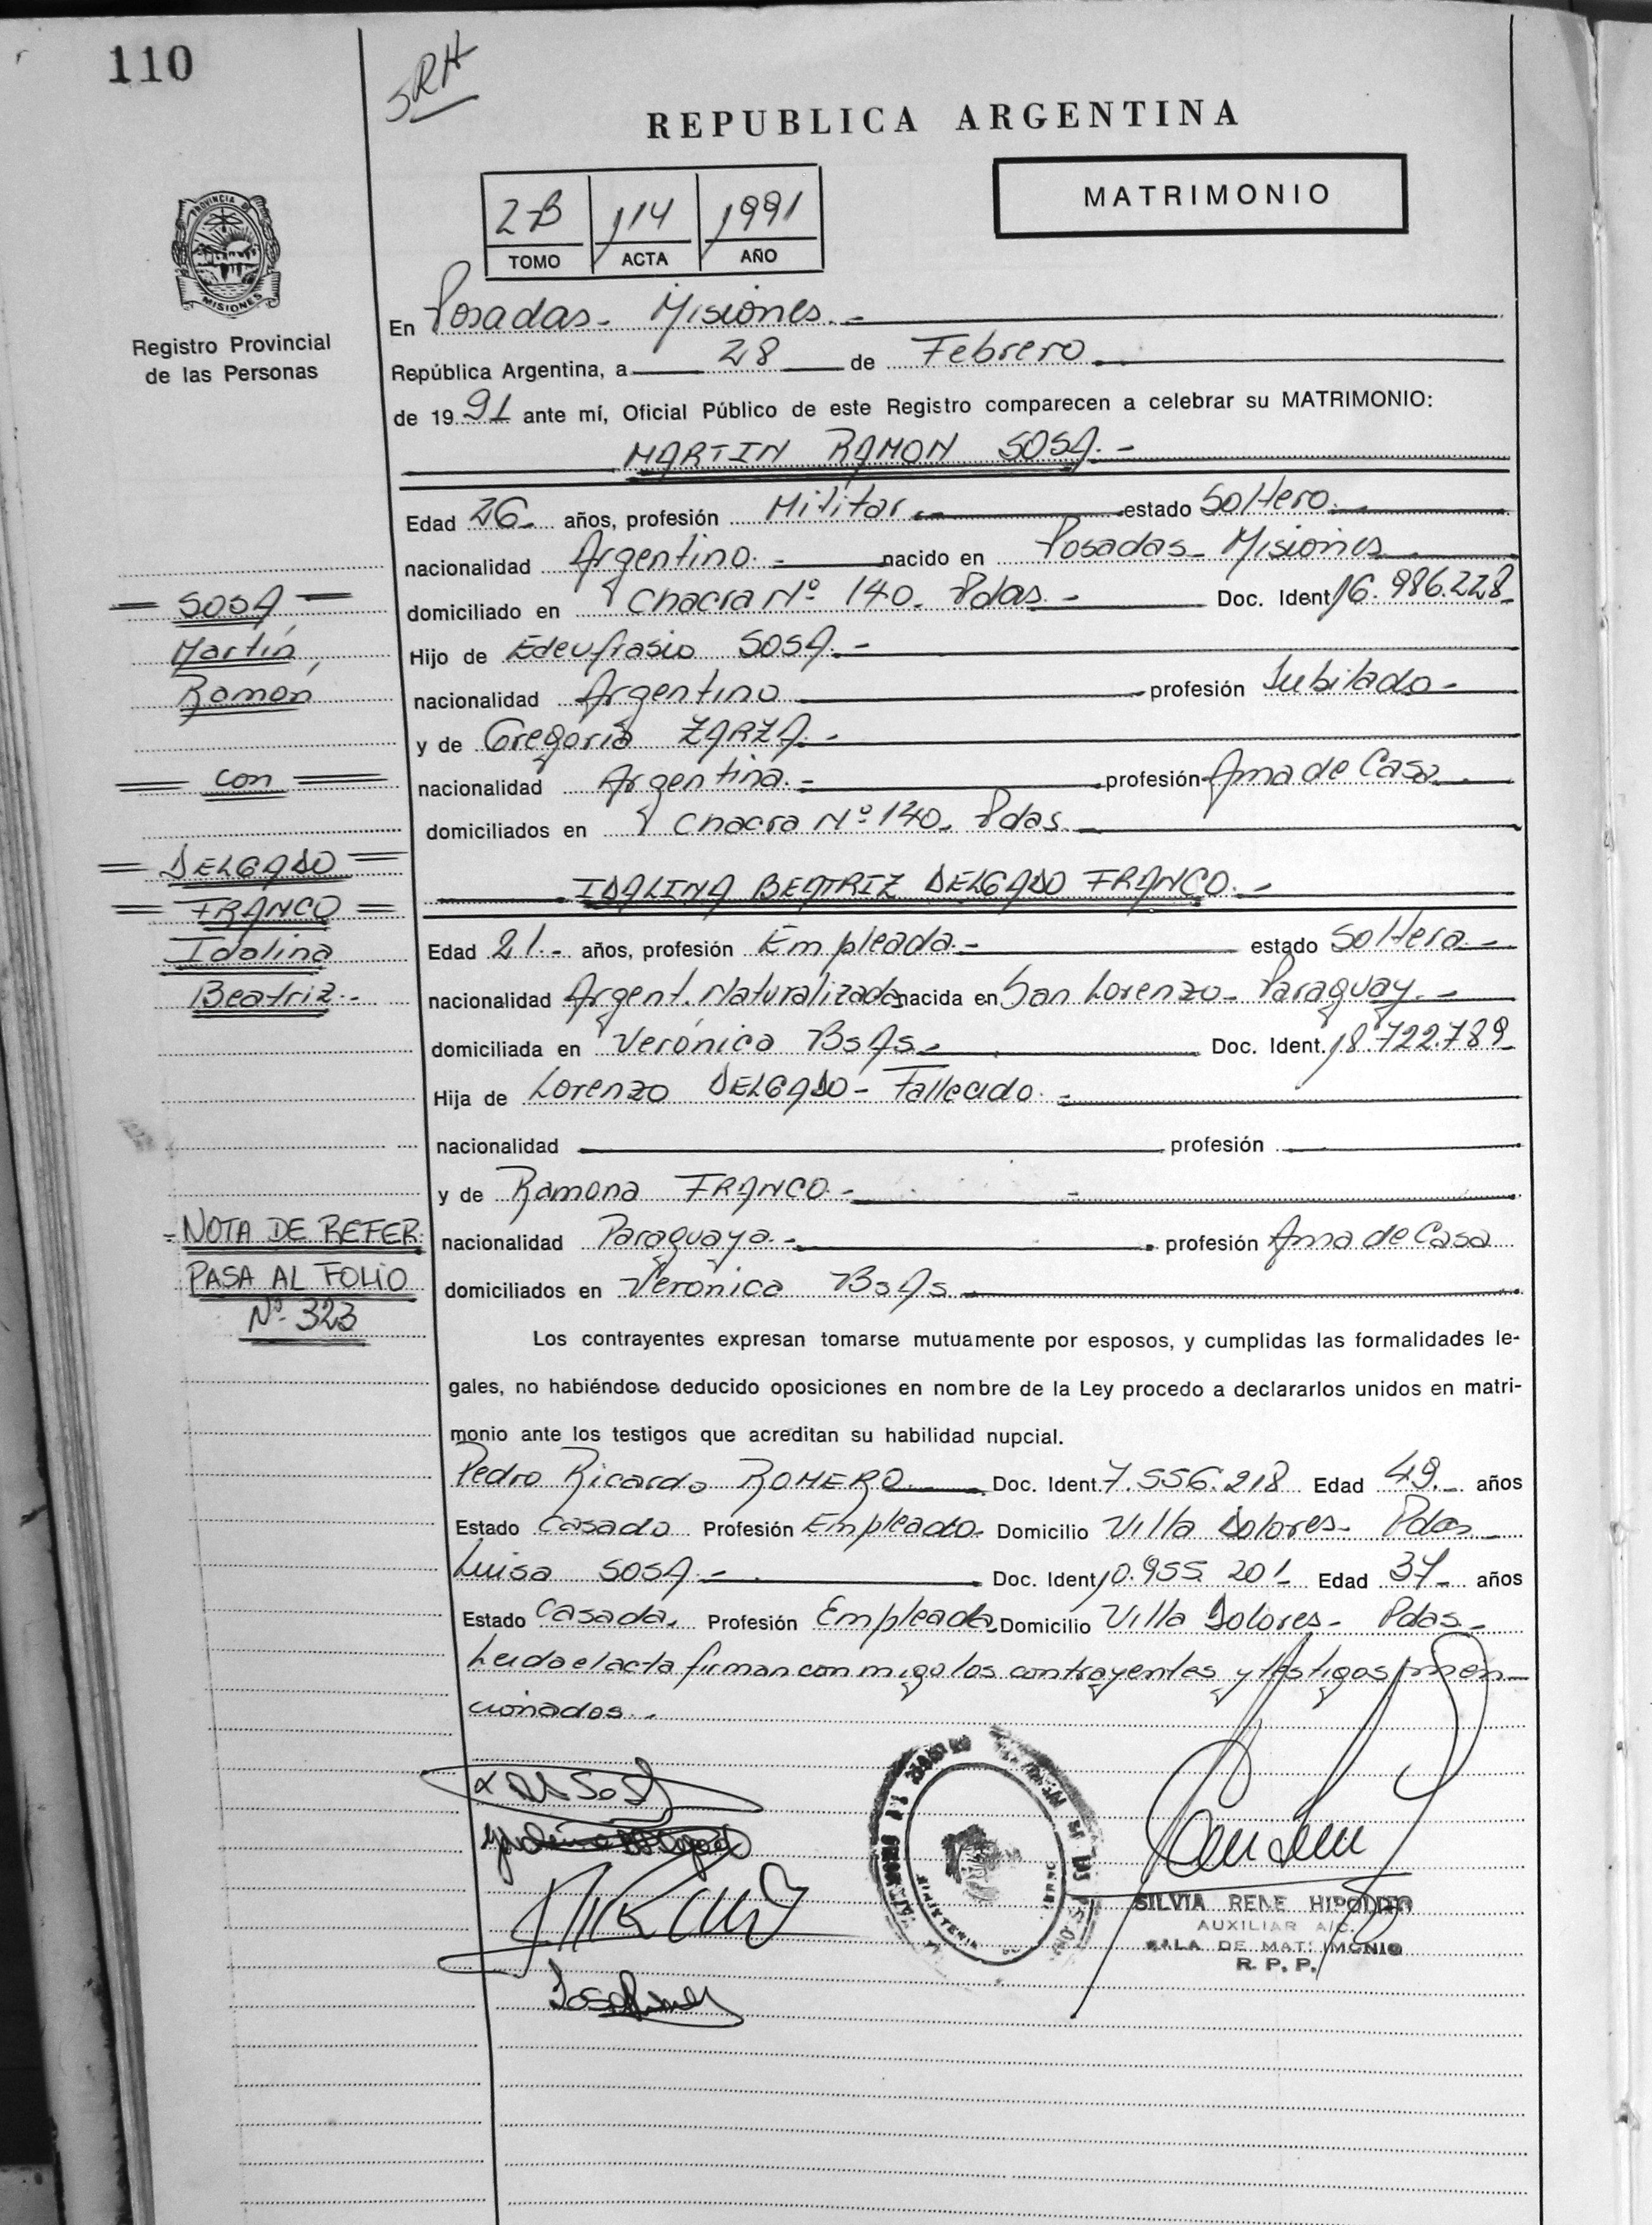 110
SRH
REPUBLICA ARGENTINA
MATRIMONIO
2-B 114 1991
TOMO ACTA AÑO
PROVINCIA DE
MISIONES
Registro Provincial
de las Personas
En Posadas - Misiones. -
República Argentina, a 28 de Febrero
de 19 91 ante mí, Oficial Público de este Registro comparecen a celebrar su MATRIMONIO:
MARTIN RAMON SOSA. -
Edad 26 años, profesión Militar estado Soltero.
nacionalidad Argentino. - nacido en Posadas - Misiones
= SOSA = domiciliado en Chacra Nº 140. Pdas. - Doc. Ident. 16.986.228
Martín, Hijo de Edeufrasio SOSA. -
Ramón nacionalidad Argentino profesión Jubilado -
y de Gregoria ZARZA. -
= con = nacionalidad Argentina. - profesión Ama de Casa
domiciliados en Chacra Nº 140. Pdas.
= DELGADO =
= FRANCO = IDALINA BEATRIZ DELGADO FRANCO. -
Idalina Edad 21.- años, profesión Empleada. - estado Soltera -
Beatriz.- nacionalidad Argent. Naturalizada nacida en San Lorenzo - Paraguay. -
domiciliada en Verónica BsAs - Doc. Ident. 18.722.789
Hija de Lorenzo DELGADO - Fallecido. -
nacionalidad profesión
y de Ramona FRANCO. -
= NOTA DE REFER. nacionalidad Paraguaya. - profesión Ama de Casa
PASA AL FOLIO domiciliados en Verónica BsAs
Nº 323
Los contrayentes expresan tomarse mutuamente por esposos, y cumplidas las formalidades le-
gales, no habiéndose deducido oposiciones en nombre de la Ley procedo a declararlos unidos en matri-
monio ante los testigos que acreditan su habilidad nupcial.
Pedro Ricardo ROMERO Doc. Ident. 7.556.218 Edad 49. años
Estado Casado Profesión Empleado Domicilio Villa Dolores - Pdas
Luisa SOSA - Doc. Ident. 10.955.201 Edad 37 años
Estado Casada. Profesión Empleada Domicilio Villa Dolores - Pdas -
Leida el acta firman con migo los contrayentes y testigos men-
cionados. -
SILVIA RENE HIPOLITO
AUXILIAR A/C.
SALA DE MATRIMONIO
R. P. P.